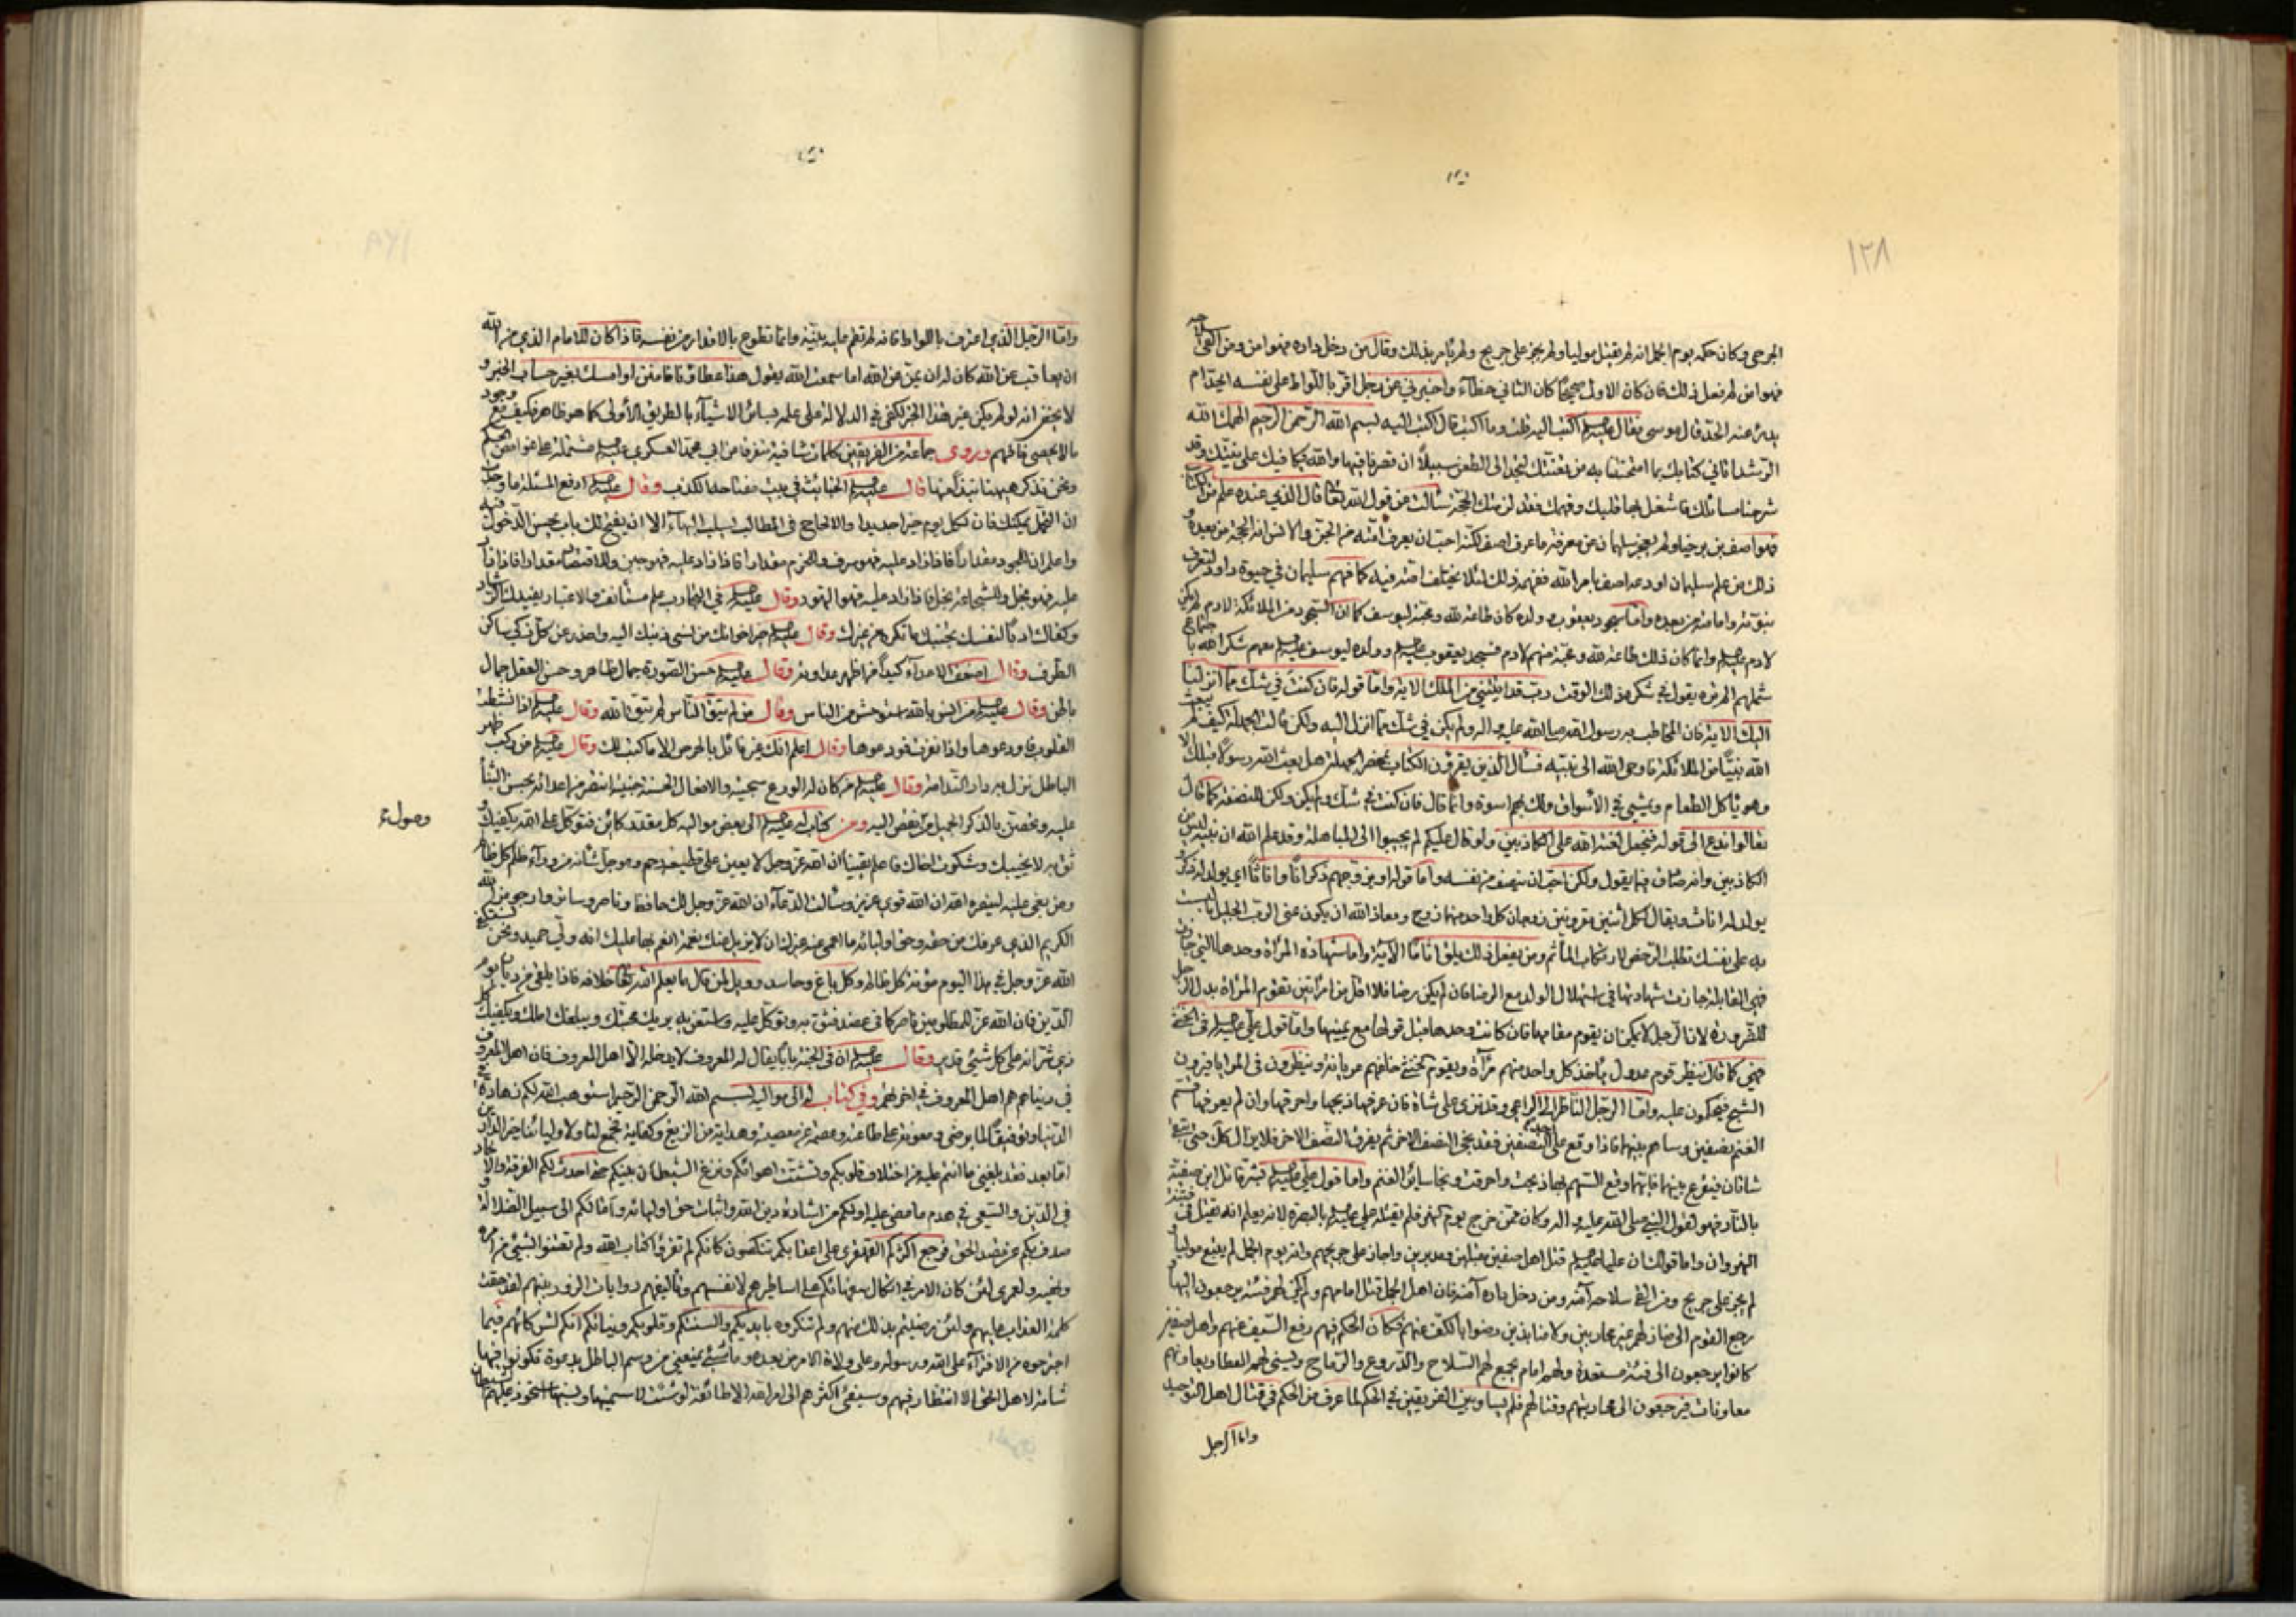 ١٢٨
الجرحى وكان حكمه يوم الجمل انه لم يقبل موليا ولم يجز على جريح ولم يأمر بذلك وقال من دخل داره فهو امن ومن القى سلاحه
فهو امن لم فعل ذلك فان كان الاول صحيحا كان الثاني خطاء واخبرني عن رجل اقر باللواط على نفسه ايحد ام
يدرء عنه الحد قال موسى فقال اكتب اليه قلت وما اكتب قال اكتب اليه بسم الله الرحمن الرحيم الهمك الله
الرشد اتاني كتابك بما امتحنتنا به من تعنتك لتجد الى الطعن سبيلا ان قصرنا فيها والله يكافيك على نيتك وقد
شرحنا مسائلك فاشغل بها قلبك وفهمك فقد لزمتك الحجة سألت عن قول الله قال الذي عنده علم من الكتاب
فهو اصف بن برخيا ولم يعجز سليمان عن معرفة ما عرف اصف لكنه احب ان يعرف امته من الجن والانس انه الحجة من بعده و
ذلك من علم سليمان اودعه اصف بامر الله ففهمه ذلك لئلا يختلف امته فيه كما فهم سليمان في حيوة داود لتعرف
نبوته وامامته من بعده واما سجود يعقوب وولده كان طاعة لله ومحبة ليوسف كما ان السجود من الملائكة لادم لم يكن
لادم وانما كان ذلك طاعة لله ومحبة منهم لادم فسجد يعقوب وولده ليوسف معهم شكرا لله باجتماع
شملهم الم تره يقول في شكره ذلك الوقت رب قد اتيتني من الملك الاية واما قوله فان كنت في شك مما انزلنا
اليك الاية فان المخاطب به رسول الله صلى الله عليه واله ولم يكن في شك مما انزل اليه ولكن قالت الجهلة كيف لم يبعث
الله نبيا من الملائكة فاوحى الله الى نبيه فسأل الذين يقرؤن الكتاب بمحضر الجهلة هل بعث الله رسولا قبلك الا
وهو يأكل الطعام ويمشي في الاسواق ولك بهم اسوة وانما قال فان كنت في شك ولم يكن ولكن للنصفة كما قال
تعالوا ندع الى قوله فنجعل لعنة الله على الكاذبين ولو قال عليكم لم يجيبوا الى المباهلة وقد علم الله ان نبيه ليس من
الكاذبين وانه صادق فيما يقول ولكن احب ان ينصف من نفسه واما قوله او يزوجهم ذكرانا واناثا اي يولد له ذكور
يولد له اناث ويقال لكل اثنين مقرونين زوجان كل واحد منهما زوج ومعاذ الله ان يكون عنى الرب الجليل ما لبست
به على نفسك تطلب الرخص لارتكاب المأثم ومن يفعل ذلك يلق اثاما الاية واما شهادة المرأة وحدها التي جازت
فهي القابلة جازت شهادتها في استهلال الولد مع الرضا فان لم يكن رضا فلا اقل من امرأتين تقوم المرأة بدل الرجل
للضرورة لان الرجل لا يمكنه ان يقوم مقامها فان كانت وحدها قبل قولها مع يمينها واما قول علي في الخنثى
فهي كما قال ينظر قوم عدول يأخذ كل واحد منهم مرآة ويقوم الخنثى خلفهم عريانة وينظرون في المرايا فيرون
الشبح فيحكمون عليه واما الرجل الناظر الى الراعي وقد نزى على شاة فان عرفها ذبحها واحرقها وان لم يعرفها قسم
الغنم نصفين وساهم بينهما فاذا وقع على احد النصفين فقد نجى النصف الاخر ثم يفرق النصف الاخر فلا يزال كذلك حتى تبقى
شاتان فيقرع بينهما فايتهما وقع السهم بها ذبحت واحرقت ونجا سائر الغنم واما قول علي بشر قاتل ابن صفية
بالنار فهو لقول النبي صلى الله عليه واله وكان ممن خرج يوم النهر فلم يقتله علي بالبصرة لانه يعلم انه يقتل في فتنة
النهروان واما قولك ان عليا قتل اهل صفين مقبلين ومدبرين واجاز على جريحهم وانه يوم الجمل لم يتبع موليا و
لم يجز على جريح ومن القى سلاحه آمنه ومن دخل داره آمنه فان اهل الجمل قتل امامهم ولم يكن لهم فئة يرجعون اليها
رجع القوم الى منازلهم غير محاربين ولا منابذين رضوا بالكف عنهم فكان الحكم فيهم رفع السيف عنهم واهل صفين
كانوا يرجعون الى فئة مستعدة ولهم امام يجمع لهم السلاح والدروع والرماح ويسني لهم العطاء
فيرجعون الى محاربتهم وقتالهم فلم يساو بين الفريقين في الحكم لما عرف من الحكم في قتال اهل التوحيد
واما الرجل
واما الرجل الذي اعترف باللواط فانه لم تقم عليه بينة وانما تطوع بالاقرار من نفسه فاذا كان للامام الذي من الله
ان يعاقب عن الله كان له ان يمن عن الله اما سمعت الله يقول هذا عطاؤنا فامنن او امسك بغير حساب الخبر و
لا يخفى انه لو لم يكن غير هذا الخبر لكفى في الدلالة على علمه بسائر الاشياء بالطريق الاولى كما هو ظاهر فكيف مع وجود
ما لا يحصى فافهم وروى جماعة من الفريقين كلمات شافية متفرقة من ابي محمد العسكري مشتملة على غوامض الحكم
ونحن نذكر ههنا نبذا منها قال الخبائث في بيت مفتاحها الكذب وقال ادفع المسئلة ما وجدت
ان التحمل يمكنك فان لكل يوم خيرا جديدا والالحاح في المطالب يسلب البهاء الا ان يفتح لك باب يحسن الدخول فيه
واعلم ان للجود مقدارا فاذا زاد عليه فهو سرف وللحزم مقدارا فاذا زاد عليه فهو جبن وللاقتصاد مقدارا فاذا زاد
عليه فهو بخل وللشجاعة مقدارا فاذا زاد عليه فهو التهور وقال في التجارب علم مستأنف والاعتبار يفيدك الرشاد
وكفاك ادبا لنفسك تجنبك ما تكره من غيرك وقال خير اخوانك من نسي ذنبك اليه واحذر من كل ذكي ساكن
الطرف وقال اضعف الاعداء كيدا من اظهر عداوته وقال حسن الصورة جمال ظاهر وحسن العقل جمال
باطن وقال من انس بالله استوحش من الناس وقال من لم يتق الناس لم يتق الله وقال اذا نشطت
القلوب فاودعوها واذا نفرت فودعوها وقال اعلم انك غير نائل بالحرص الا ما كتب لك وقال من ركب ظهر
الباطل نزل به دار الندامة وقال من كان له الورع سجيته والافضال الحسنة جنيته انتصر من اعدائه بحسن الثناء
عليه وتحصن بالذكر الجميل من نقص اليه ومن كتاب له الى بعض مواليه كل مقدر كائن فتوكل على الله يكفيك و
وصوله
ثق به لا يخيبك وشكوت اخاك فاعلم يقينا ان الله عز وجل لا يعين على قطيعة رحم وهو جل شانه من وراء ظلم كل ظالم
ومن بغي عليه لينصره الله ان الله قوي عزيز وسألت الدعاء ان الله عز وجل لك حافظا وناصرا وساترا وارجو من الله
الكريم الذي عرفك من حقه وحق اوليائه ما اعمى عنه غيرك ان لا يزيل عنك نعمة انعم بها عليك انه ولي حميد ونحن نستكفي
الله عز وجل في هذا اليوم مؤنة كل ظالم وكل باغ وحاسد وويل لمن قال ما يعلم الله خلافه فاذا يلقى من ديان يوم
الدين فان الله عز للمظلومين ناصرا فثق به وتوكل عليه واستعن به يريك محبتك ويبلغك املك ويكفيك كل
ذي شر انه على كل شيء قدير وقال ان في الجنة بابا يقال له المعروف لا يدخله الا اهل المعروف فان اهل المعروف
في دنياهم هم اهل المعروف في اخرتهم وفي كتاب له الى مواليه بسم الله الرحمن الرحيم استوهب الله لكم زهادة في
الدنيا وتوفيقا لما يرضى ومعونة على طاعته وعصمة عن معصيته وهداية من الزيغ وكفاية تجمع لنا ولاوليائنا خير الدارين
اما بعد فقد بلغني ما انتم عليه من اختلاف قلوبكم وتشتت اهوائكم ونزغ الشيطان بينكم حتى احدث لكم الفرقة والالحاد
في الدين والسعي في هدم ما مضى عليه اولكم من اشادة دين الله واثبات حق اوليائه وامالكم الى سبيل الضلالة و
صدف بكم عن قصد الحق فرجع اكثركم القهقرى على اعقابكم تنكصون كانكم لم تقرؤا كتاب الله ولم تعنوا بشيء من امره
ونهيه ولعمري لئن كان الامر في اتكال سفهائكم على اساطيرهم لانفسهم وتأليفهم روايات الزور بينهم لقد حقت
كلمة العذاب عليهم ولئن رضيتم بذلك منهم ولم تنكروه بايديكم والسنتكم وقلوبكم ونياتكم انكم لشركائهم فيما
اجترحوه من الافتراء على الله ورسوله وعلى ولاة الامر من بعده
شامة لاهل الحق الا انتظار فيهم وسيفيء اكثرهم الى امر الله الا طائفة لو شئت لسميتها ونسبتها استحوذ عليهم الشيطان